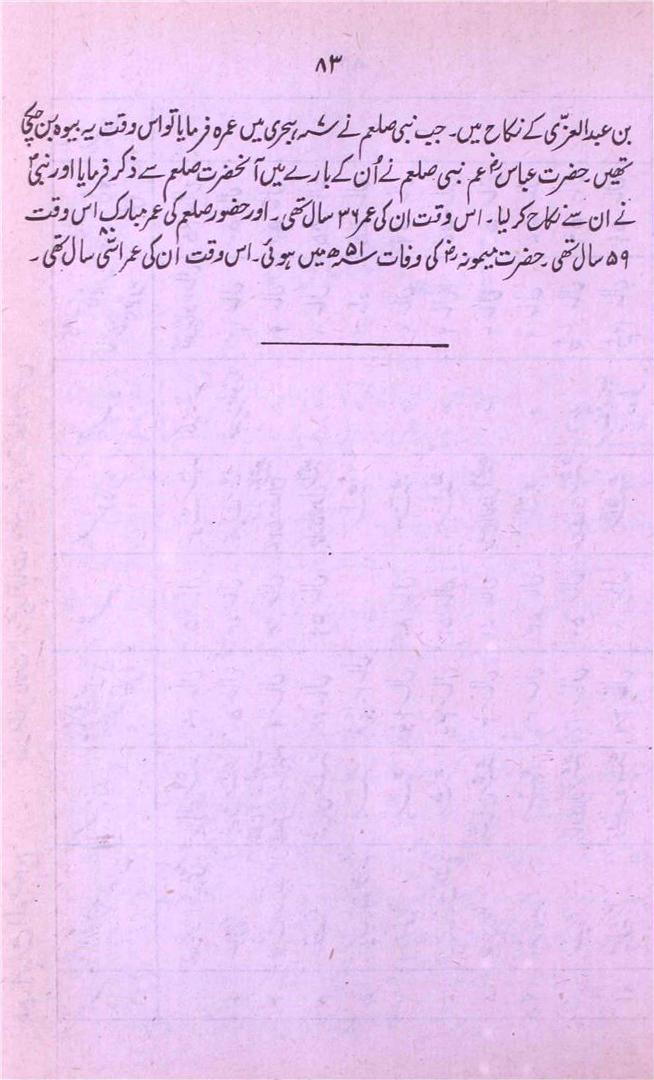 ۸۳
بن عبدالعزّیٰ کے نکاح میں۔ جب نبی صلعم نے ۷ سنہ ہجری میں عمرہ فرمایا تو اس وقت یہ بیوہ بن چکی
تھیں۔ حضرت عباسؓ عم نبی صلعم نے اُن کے بارے میں آنحضرت صلعم سے ذکر فرمایا اور نبیؐ
نے ان سے نکاح کر لیا۔ اس وقت ان کی عمر ۳۶ سال تھی۔ اور حضور صلعم کی عمر مبارک اس وقت
۵۹ سال تھی۔ حضرت میمونہؓ کی وفات ۵۱ سنہ ھ میں ہوئی۔ اس وقت اُن کی عمر اسّی ۸۰ سال تھی۔